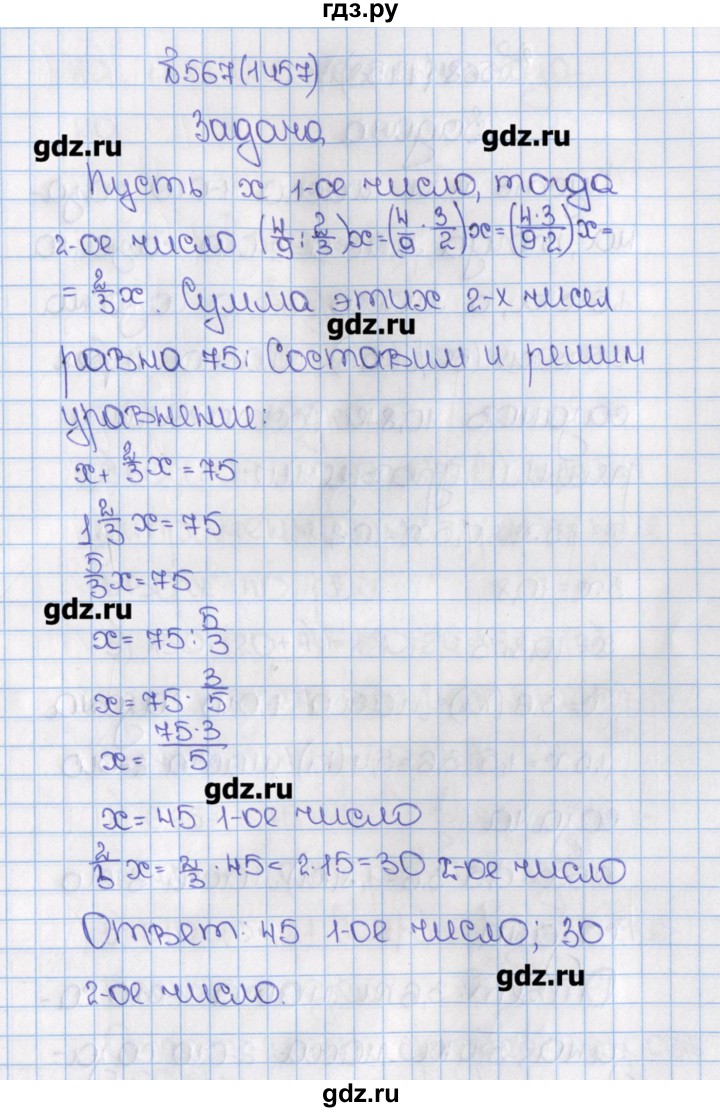 гдз.ру
№567(1457)
Задача
gdz.ru
gdz.ru
Пусть x 1-ое число, тогда
2-ое число (4/9 : 2/3)x=(4/9 · 3/2)x=(4·3/9·2)x=
= 2/3 x. Сумма этих 2-х чисел
gdz.ru
равна 75. Составим и решим
уравнение:
x+ 2/3 x = 75
1 2/3 x = 75
5/3 x = 75
gdz.ru
x = 75 : 5/3
x = 75 · 3/5
x = 75·3/5
gdz.ru
x = 45 1-ое число
2/3 x = 2/3 · 45 = 2·15 = 30 2-ое число
Ответ: 45 1-ое число; 30
gdz.ru
2-ое число.
gdz.ru